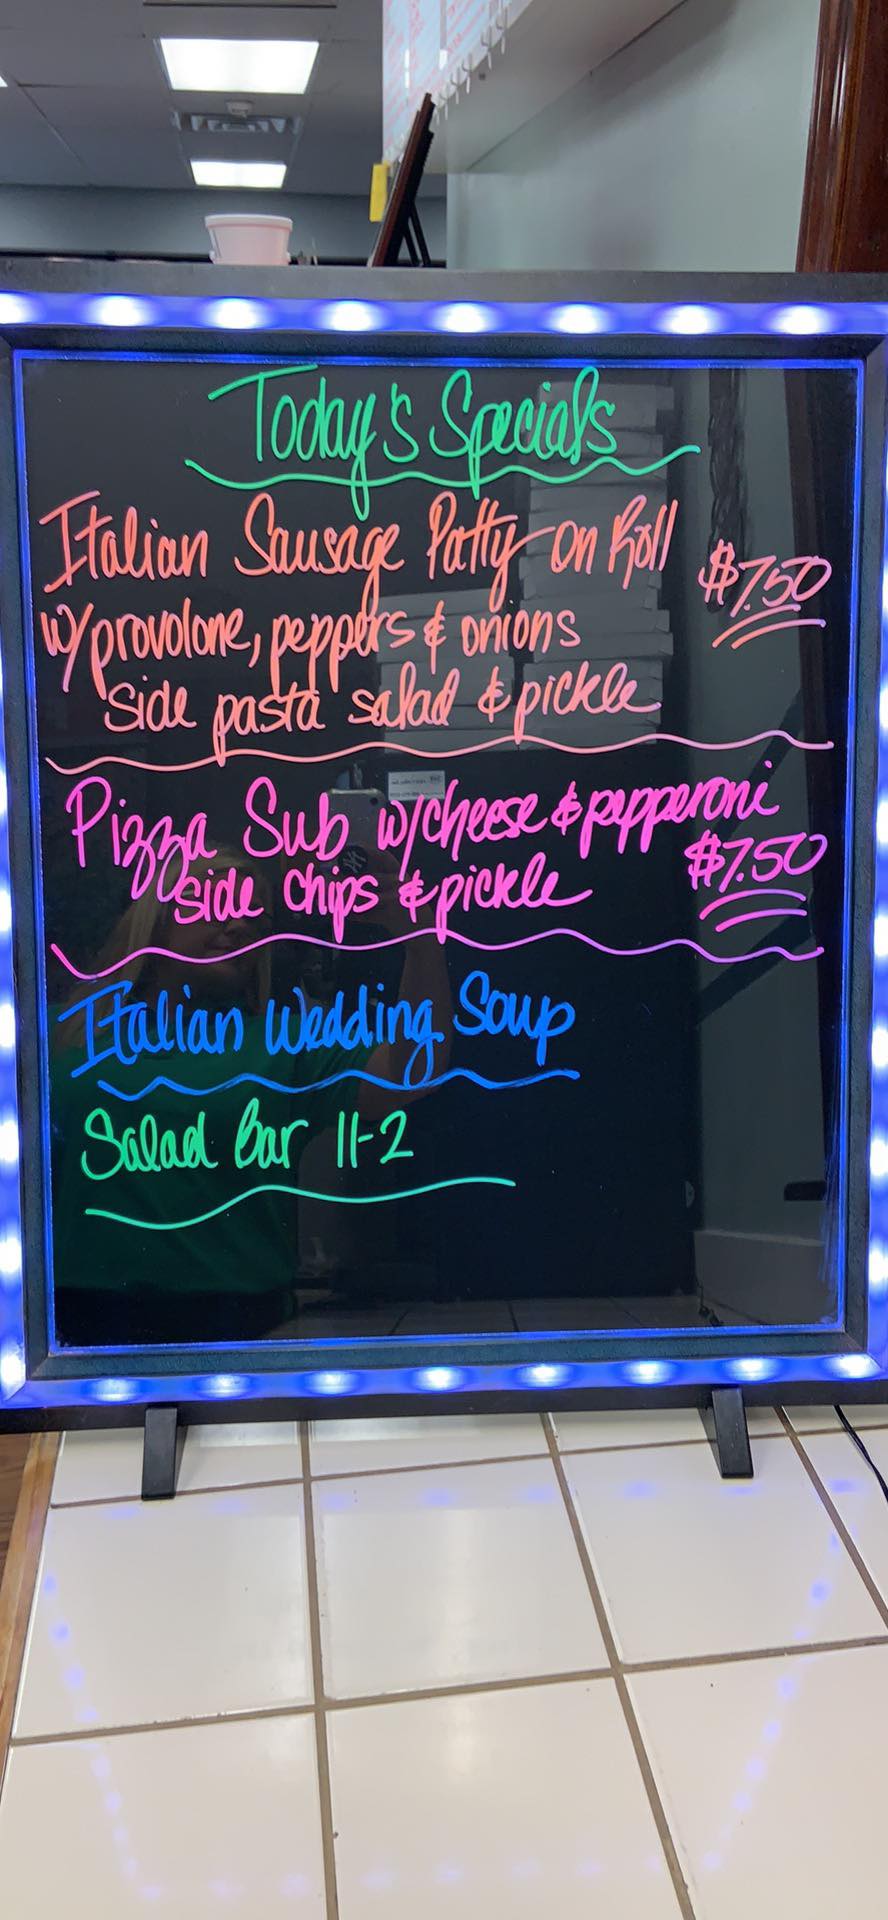 Today's Specials
Italian Sausage Patty on Roll
$7.50
w/provolone, peppers & onions
side pasta salad & pickle
Pizza Sub w/cheese & pepperoni
side chips & pickle $7.50
Italian Wedding Soup
Salad Bar 11-2